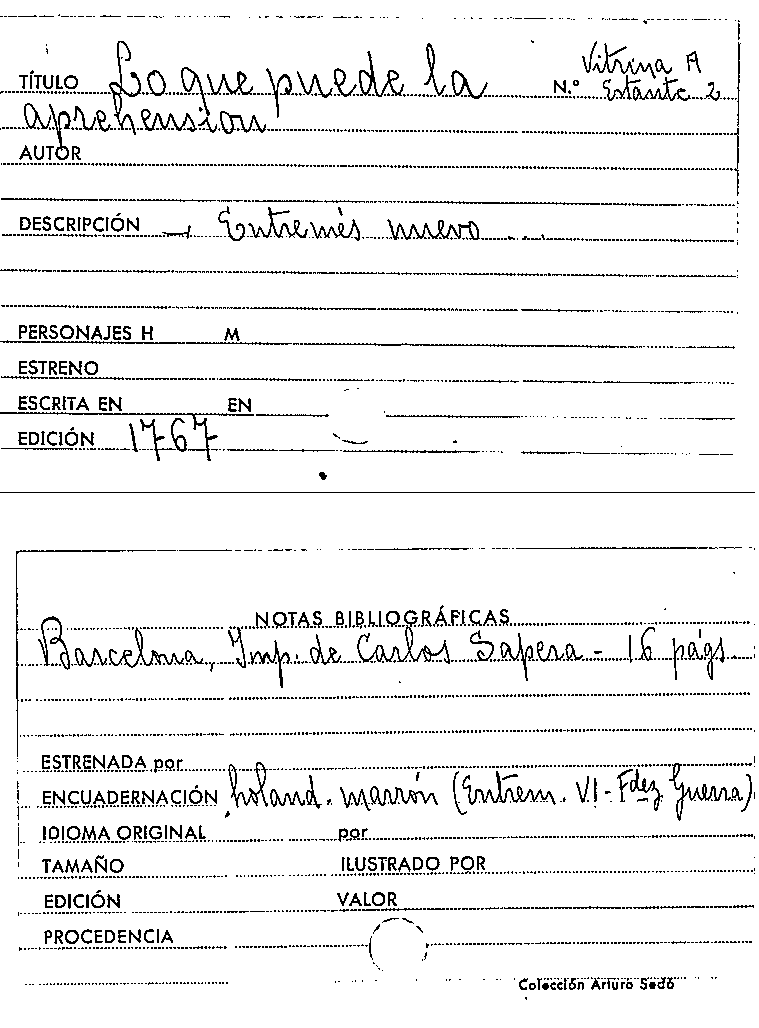 TÍTULO Lo que puede la
aprehension
N.º Vitrina A
Estante 2
AUTOR
DESCRIPCIÓN —, Entremés nuevo ...
PERSONAJES H M
ESTRENO
ESCRITA EN EN
EDICIÓN 1767
NOTAS BIBLIOGRÁFICAS
Barcelona, Imp. de Carlos Sapera - 16 págs
ESTRENADA por
ENCUADERNACIÓN holand. marrón (Entrem. VI - Fdez Guerra)
IDIOMA ORIGINAL por
TAMAÑO ILUSTRADO POR
EDICIÓN VALOR
PROCEDENCIA
Colección Arturo Sedó